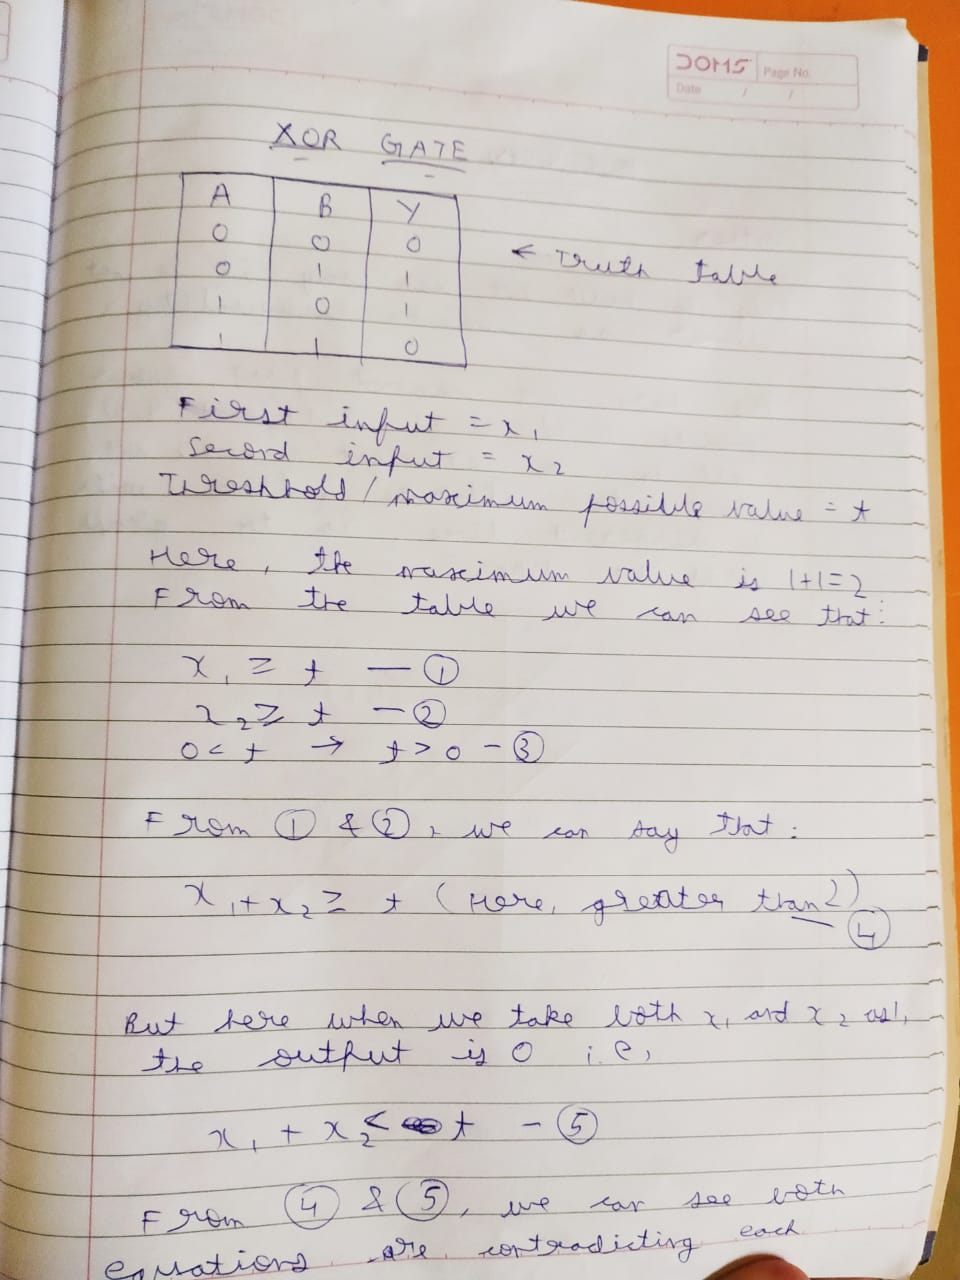 DOMS
Page No.
Date / /
XOR GATE
A B Y
0 0 0
0 1 1
1 0 1
1 1 0
← Truth table
First input = x₁
Second input = x₂
Threshhold / maximum possible value = t
Here, the maximum value is 1+1=2
From the table we can see that:
x₁ ≥ t — ①
x₂ ≥ t — ②
0 < t → t > 0 - ③
From ① & ②, we can say that:
x₁ + x₂ ≥ t (Here, greater than 2)
④
But here when we take both x₁ and x₂ as 1,
the output is 0 i.e,
x₁ + x₂ < t - ⑤
From ④ & ⑤, we can see both
equations are contradicting each